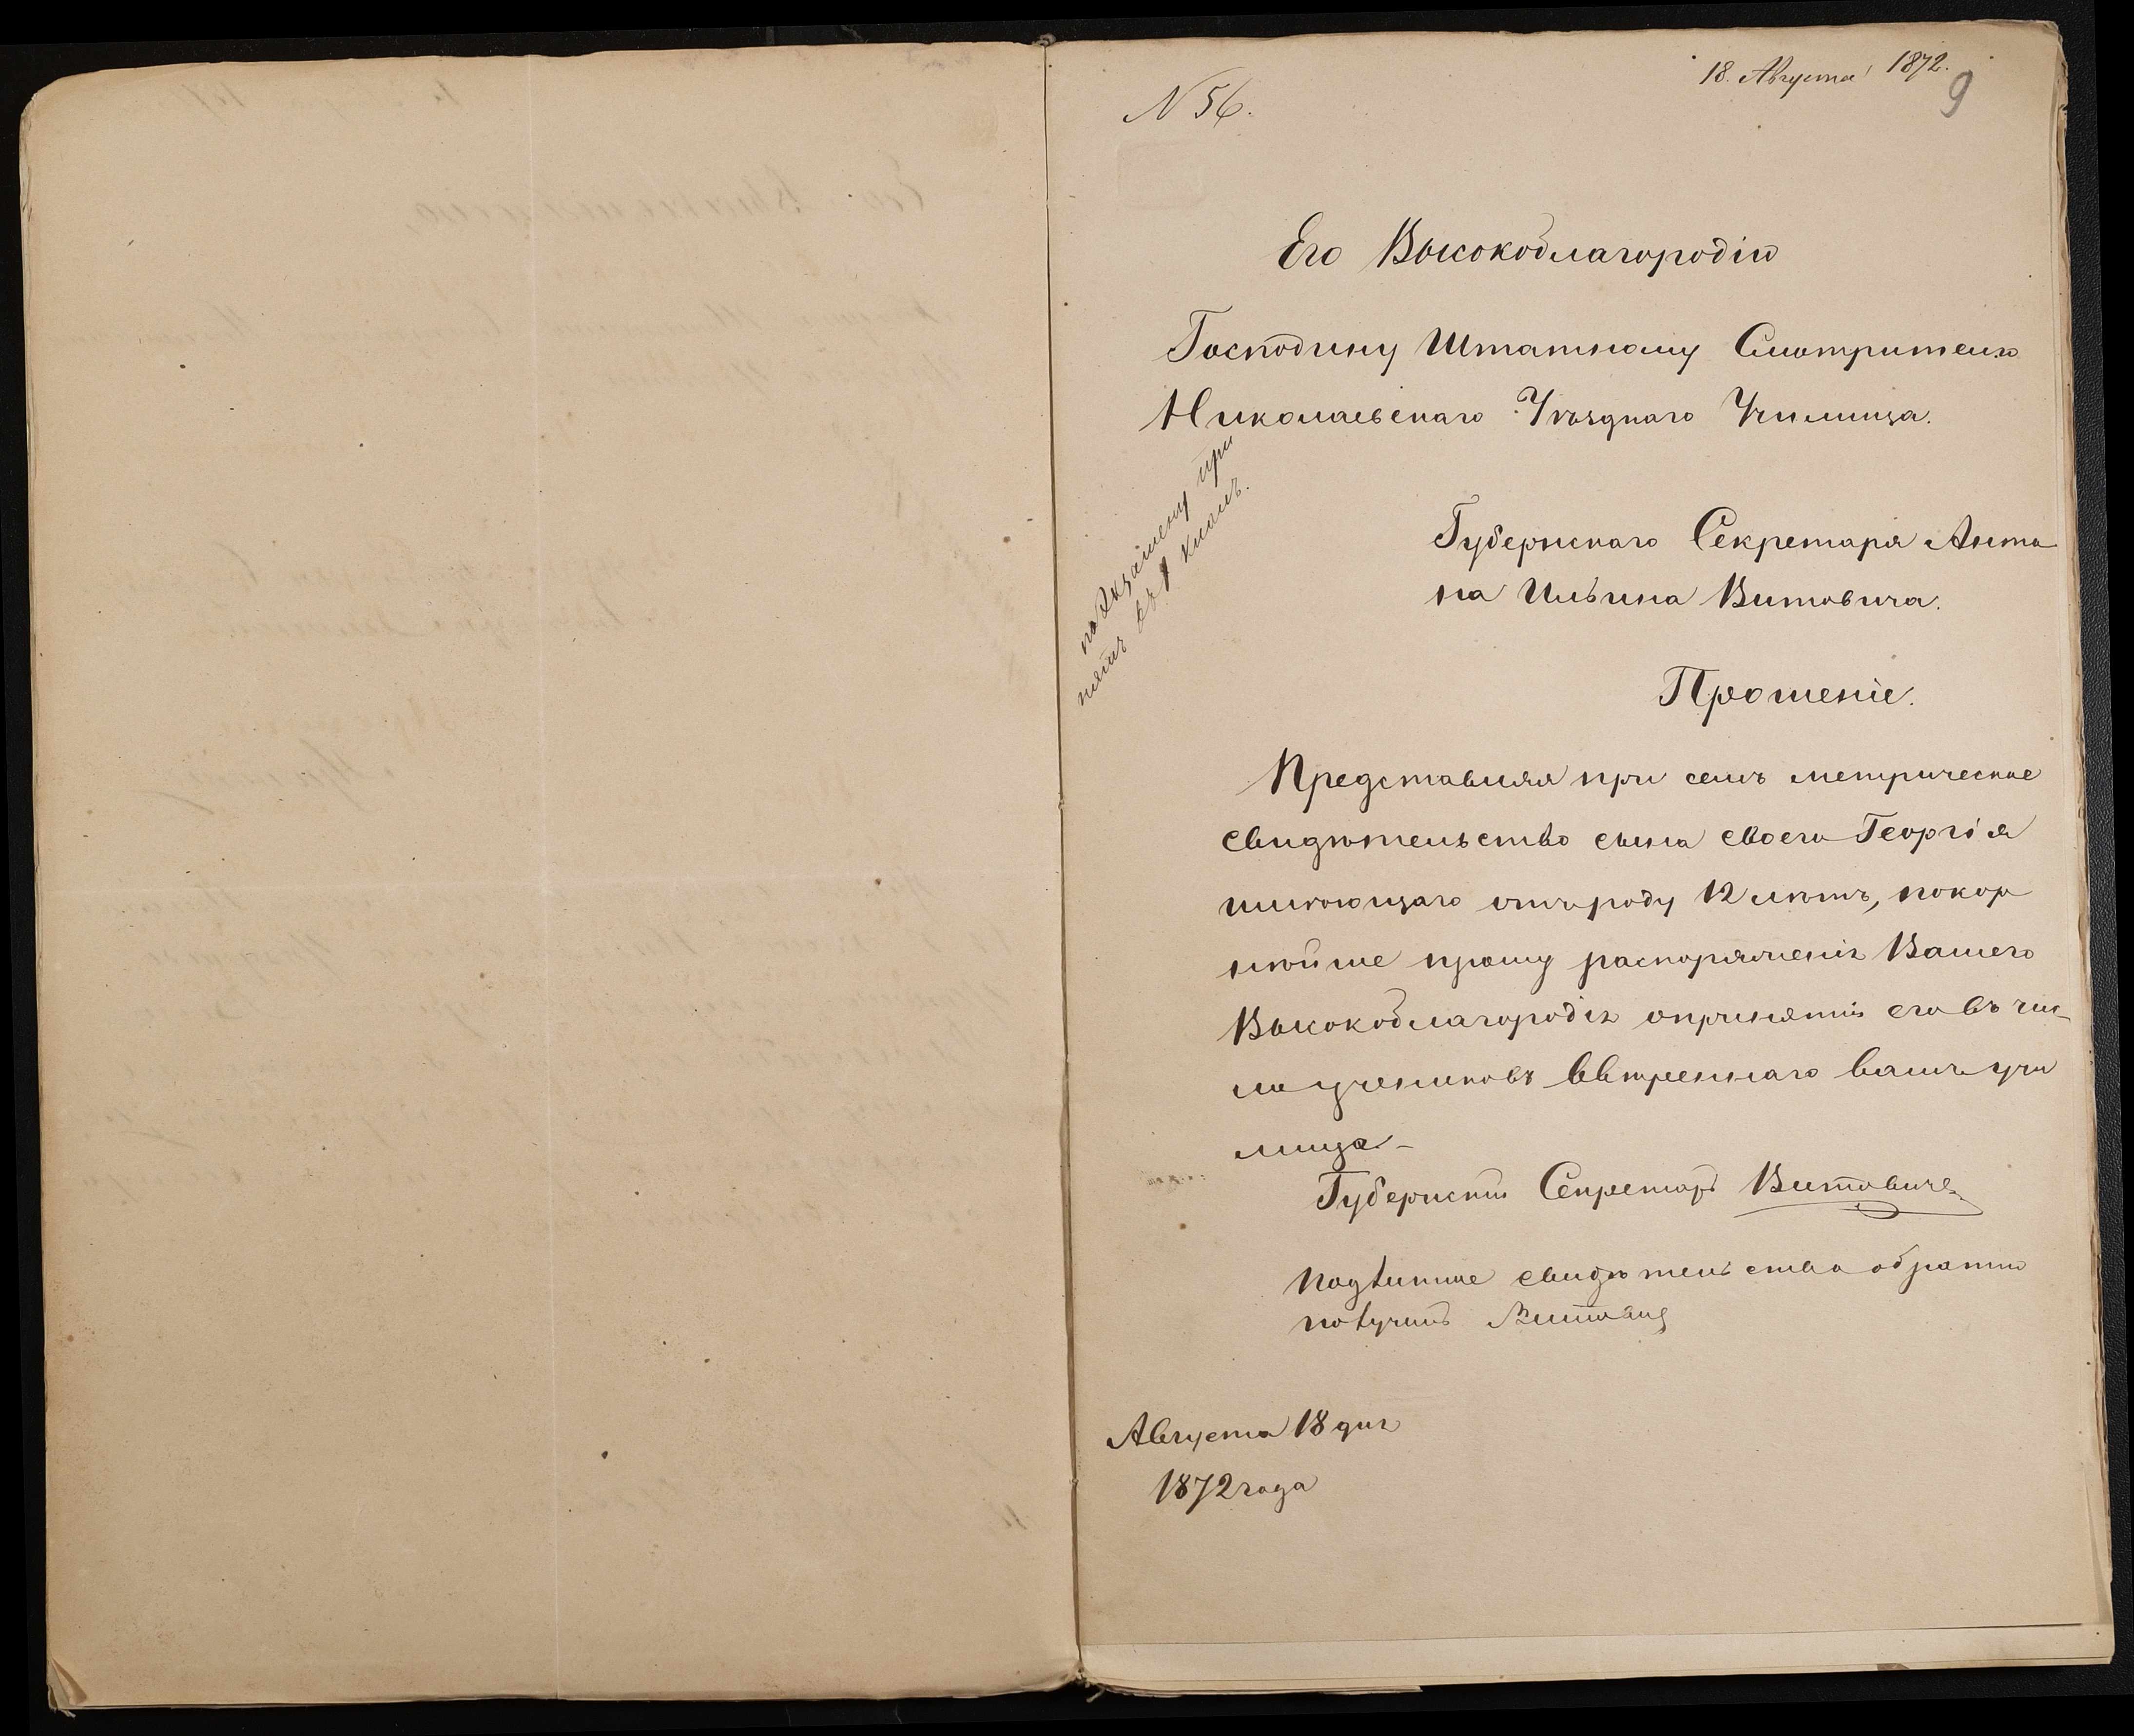 18. Августа 1872.
9
N 56.
Его Высокоблагородію
Господину Штатному Смотрителю
Николаевскаго Уѣзднаго Училища.
по Экзамену при
нятъ въ 1 классъ.
Губернскаго Секретаря Анто
на Ильина Витовича.
Прошеніе.
Представляя при семъ метрическое
свидѣтельство сына своего Георгія
имѣющаго отъ роду 12 лѣтъ, покор
нѣйше прошу распоряженія Вашего
Высокоблагородія о принятіи его въ чис-
ло учениковъ ввѣреннаго вамъ учи
лища-
Губернскій Секретарь Витовичъ
Подлинное свидѣтельство обратно
получилъ
Августа 18 дня
1872 года